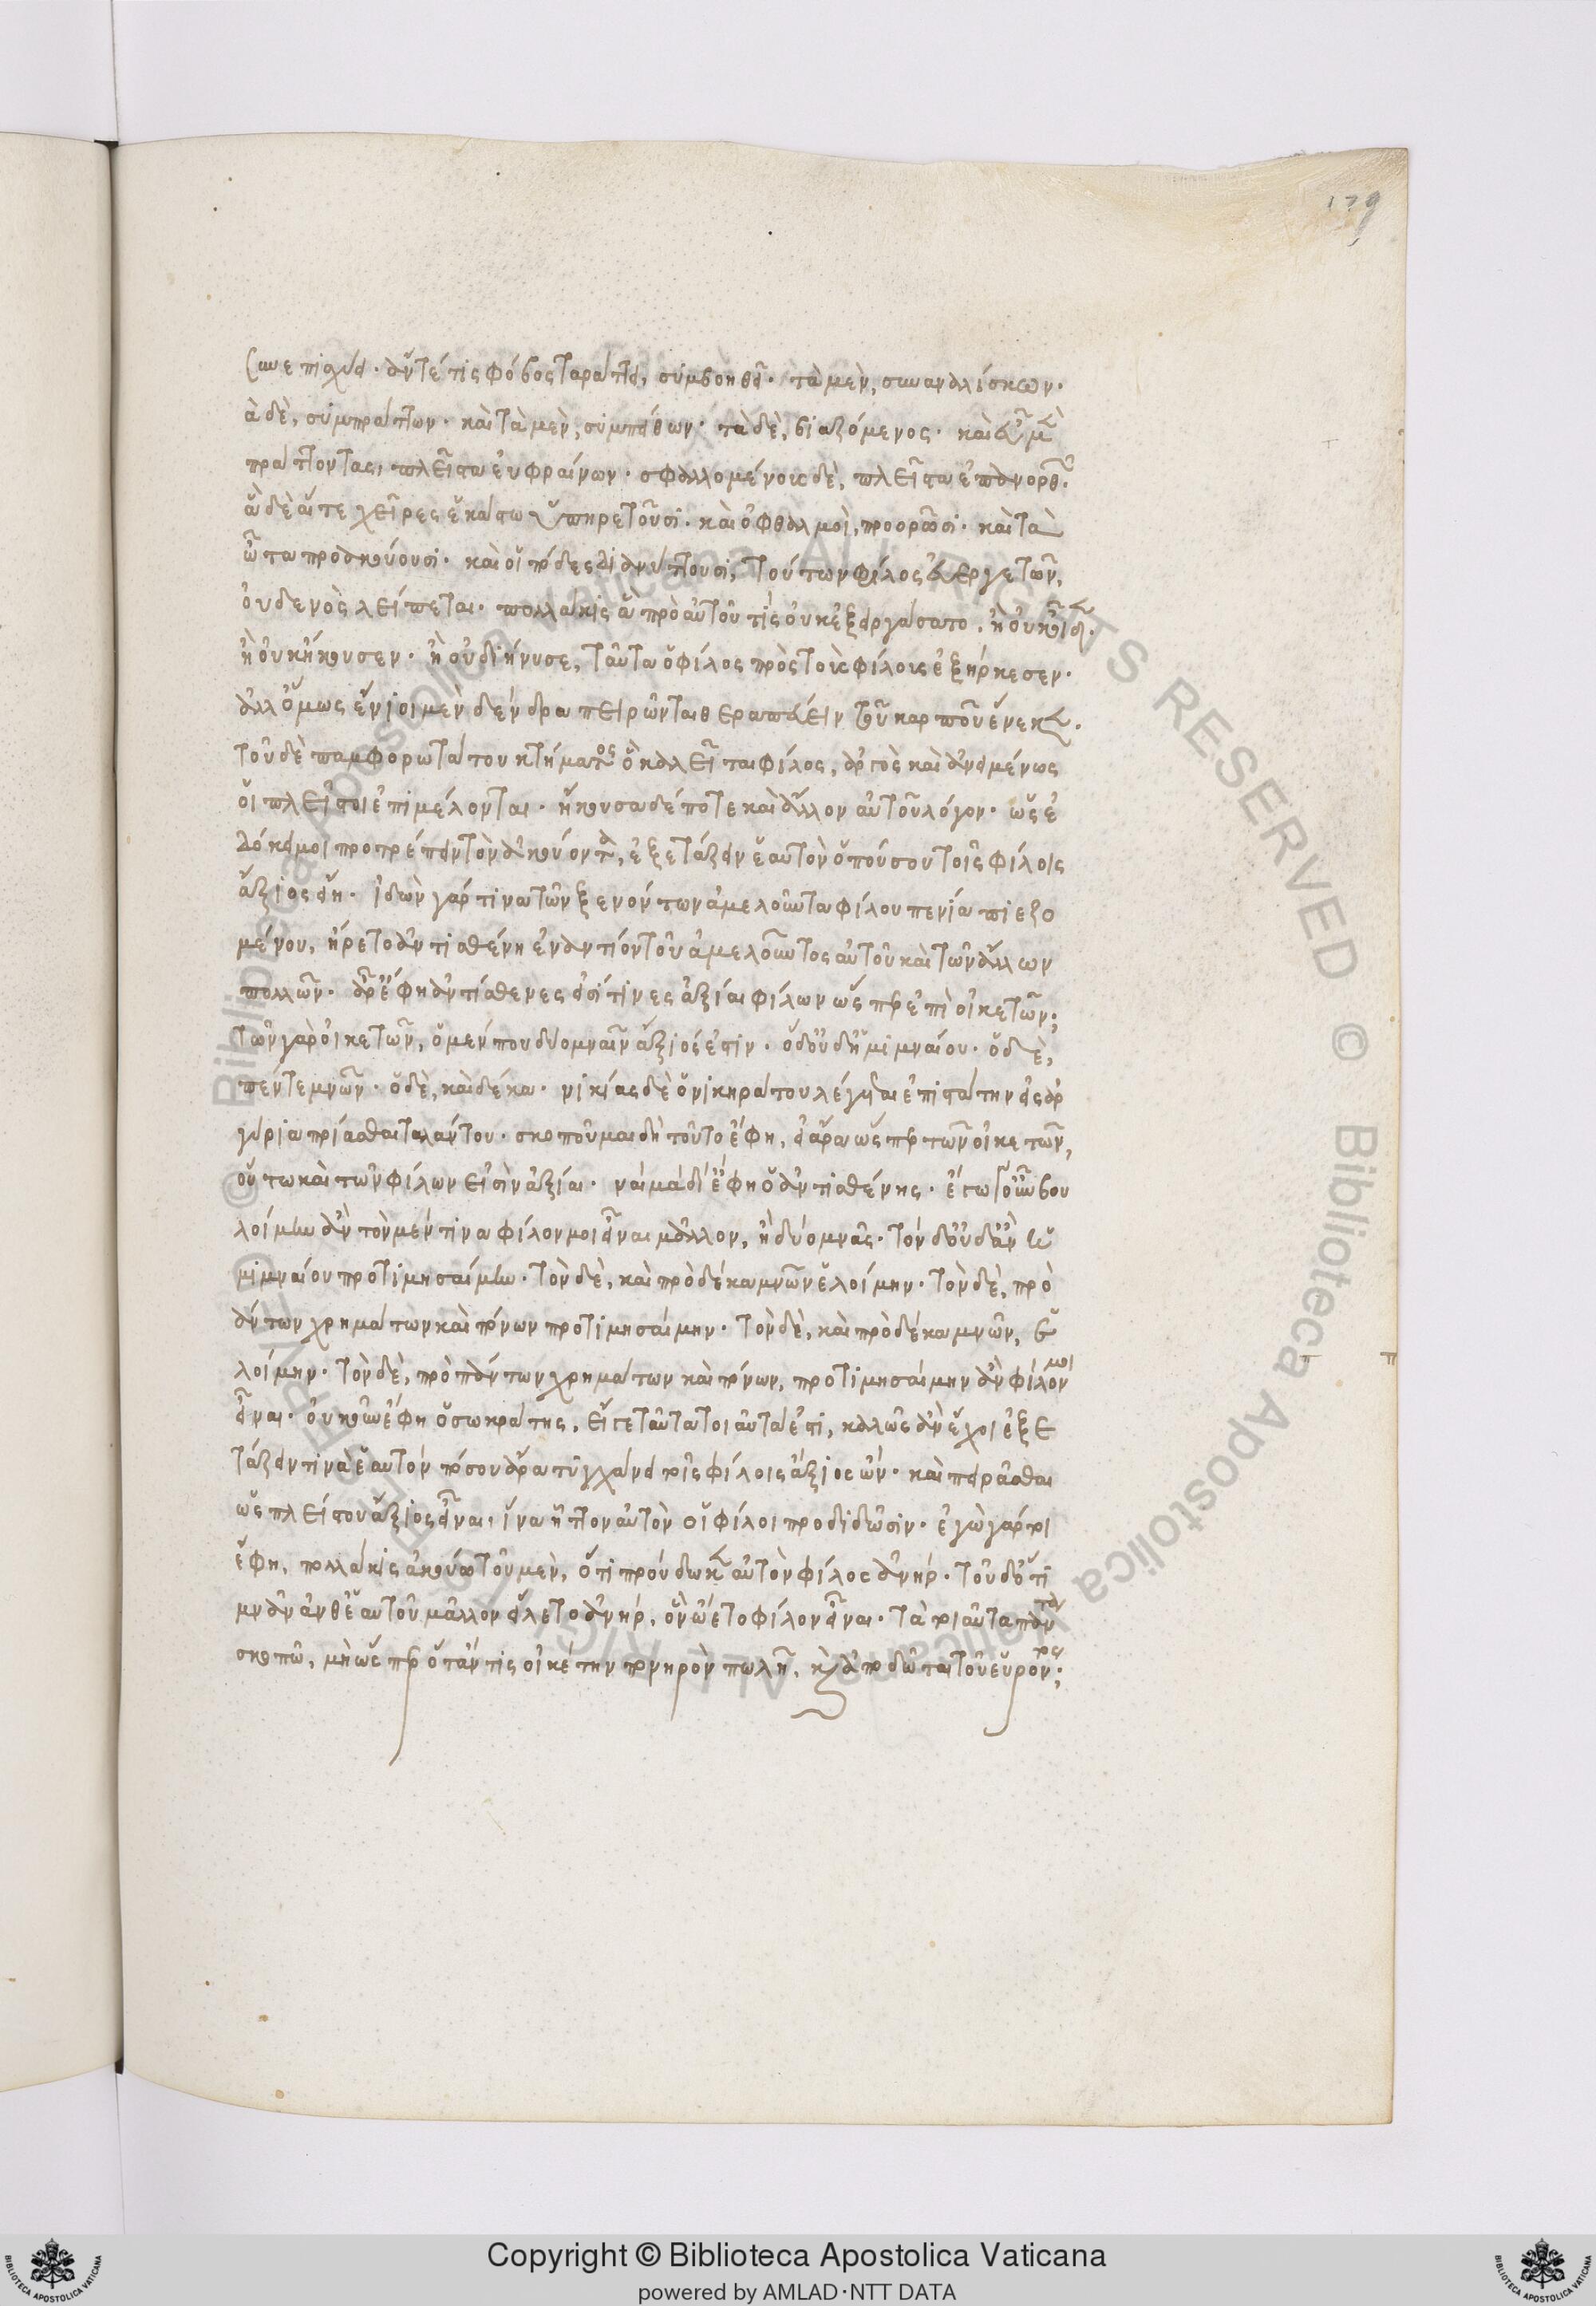 179
συνεπισχύει· ἄν τέ τις φόβος ταράττει, συμβοηθεῖ· τὰ μὲν, συναναλίσκων·
ἃ δὲ, συμπράττων· καὶ τὰ μὲν, συμπείθων· τὰ δὲ, βιαζόμενος· καὶ εὖ μὲν
πράττοντας, πλεῖστα εὐφραίνων· σφαλλομένους δὲ, πλεῖστα ἐπανορθῶν·
ἃ δὲ αἵ τε χεῖρες ἑκάστω ὑπηρετοῦσι· καὶ ὀφθαλμοὶ, προορῶσι· καὶ τὰ
ὦτα προακούουσι· καὶ οἱ πόδες διανύττουσι, τούτων φίλος εὐεργετῶν,
οὐδενὸς λείπεται· πολλάκις ἃ πρὸ αὐτοῦ τίς οὐκ ἐξειργάσατο, ἢ οὐκ εἶδεν·
ἢ οὐκ ἤκουσεν· ἢ οὐ διήνυσε, ταῦτα ὁ φίλος πρὸς τοὺς φίλους ἐξήρκεσεν·
ἀλλ' ὅμως ἔνιοι μὲν δένδρα πειρῶνται θεραπεύειν τοῦ καρποῦ ἕνεκεν·
τοῦ δὲ παμφορωτάτου κτήματος ὃ καλεῖται φίλος, ἀργὸς καὶ ἀνειμένως
οἱ πλεῖστοι ἐπιμέλονται· ἤκουσα δέ ποτε καὶ ἄλλον αὐτοῦ λόγον· ὡς ἐ
δόκει μοι προτρέπειν τὸν ἀκούοντα, ἐξετάζειν ἑαυτὸν ὁπόσου τοῖς φίλοις
ἄξιος εἴη· ἰδὼν γάρ τινα τῶν ξενόντων ἀμελοῦντα φίλου πενία πιεζο
μένου, ἤρετο ἀντισθένη ἐναντίον τοῦ ἀμελοῦντος αὐτοῦ καὶ τῶν ἄλλων
πολλῶν· ἆρ' ἔφη ἀντίσθενες εἰσί τινες ἀξίαι φίλων ὥσπερ ἐπὶ οἰκετῶν;
τῶν γὰρ οἰκετῶν, ὁ μέν που δύο μναῖν ἄξιός ἐστιν· ὁ δ' οὐδ' ἡμιμναίου· ὁ δὲ,
πέντε μνῶν· ὁ δὲ, καὶ δέκα· νικίας δὲ ὁ νικηράτου λέγεται ἐπιστάτην εἰς ἀρ
γύρια πρίασθαι ταλάντου· σκοποῦμαι δὴ τοῦτο ἔφη, εἰ ἄρα ὥσπερ τῶν οἰκετῶν,
οὕτω καὶ τῶν φίλων εἰσὶν ἀξίαι· ναὶ μὰ δί' ἔφη ὁ ἀντισθένης· ἐγὼ γοῦν βου
λοίμην ἂν τὸν μέν τινα φίλον μοι εἶναι μᾶλλον, ἢ δύο μνᾶς· τὸν δ' οὐδ' ἂν ἡ
μιμναίου προτιμησαίμην· τὸν δὲ, καὶ πρὸ δέκα μνῶν ἑλοίμην· τὸν δὲ, πρὸ
πάντων χρημάτων καὶ πόνων προτιμησαίμην· τὸν δὲ, καὶ πρὸ δέκα μνῶν, ἑ
λοίμην· τὸν δὲ, πρὸ πάντων χρημάτων καὶ πόνων, προτιμησαίμην ἂν φίλον μοι
εἶναι· οὐκοῦν ἔφη ὁ σωκράτης, εἴ γε ταῦτα τοιαῦτά ἐστι, καλῶς ἂν ἔχοι ἐξε
τάζειν τινὰ ἑαυτὸν πόσου ἄρα τυγχάνει τοῖς φίλοις ἄξιος ὤν· καὶ πειρᾶσθαι
ὡς πλείστου ἄξιος εἶναι· ἵνα ἧττον αὐτὸν οἱ φίλοι προδιδῶσιν· ἐγὼ γάρ τοι
ἔφη, πολλάκις ἀκούω τοῦ μὲν, ὅτι προύδωκεν αὐτὸν φίλος ἀνήρ· τοῦ δ' ὅτι
μνᾶν ἀνθ' ἑαυτοῦ μᾶλλον εἵλετο ἀνήρ, ὃν ᾤετο φίλον εἶναι· τὰ τοιαῦτα πάντα
σκοπῶ, μὴ ὥσπερ ὅταν τις οἰκέτην πονηρὸν πωλῆ, καὶ ἀποδῶται τοῦ εὑρόντος;